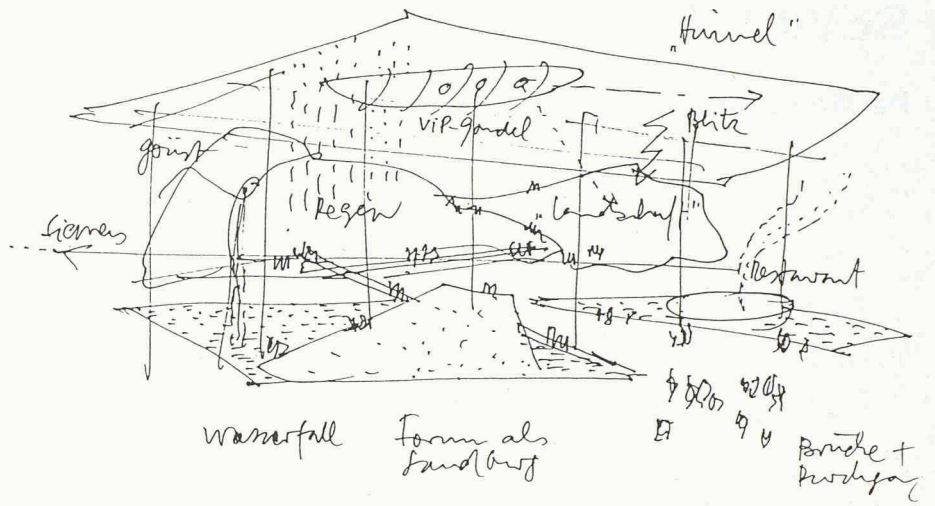 „Himmel"
VIP-Gondel
Blitz
Regen
„Landschaft"
Siemens
Restaurant
Wasserfall
Forum als
Sandburg
Brücke +